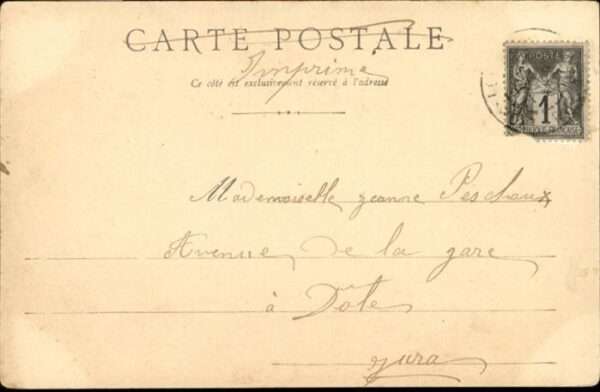 CARTE POSTALE
Imprimé
Ce côté est exclusivement réservé à l'adresse
POSTE
1
Mademoiselle Jeanne Peschaux
Avenue de la gare
à Dôle
Jura